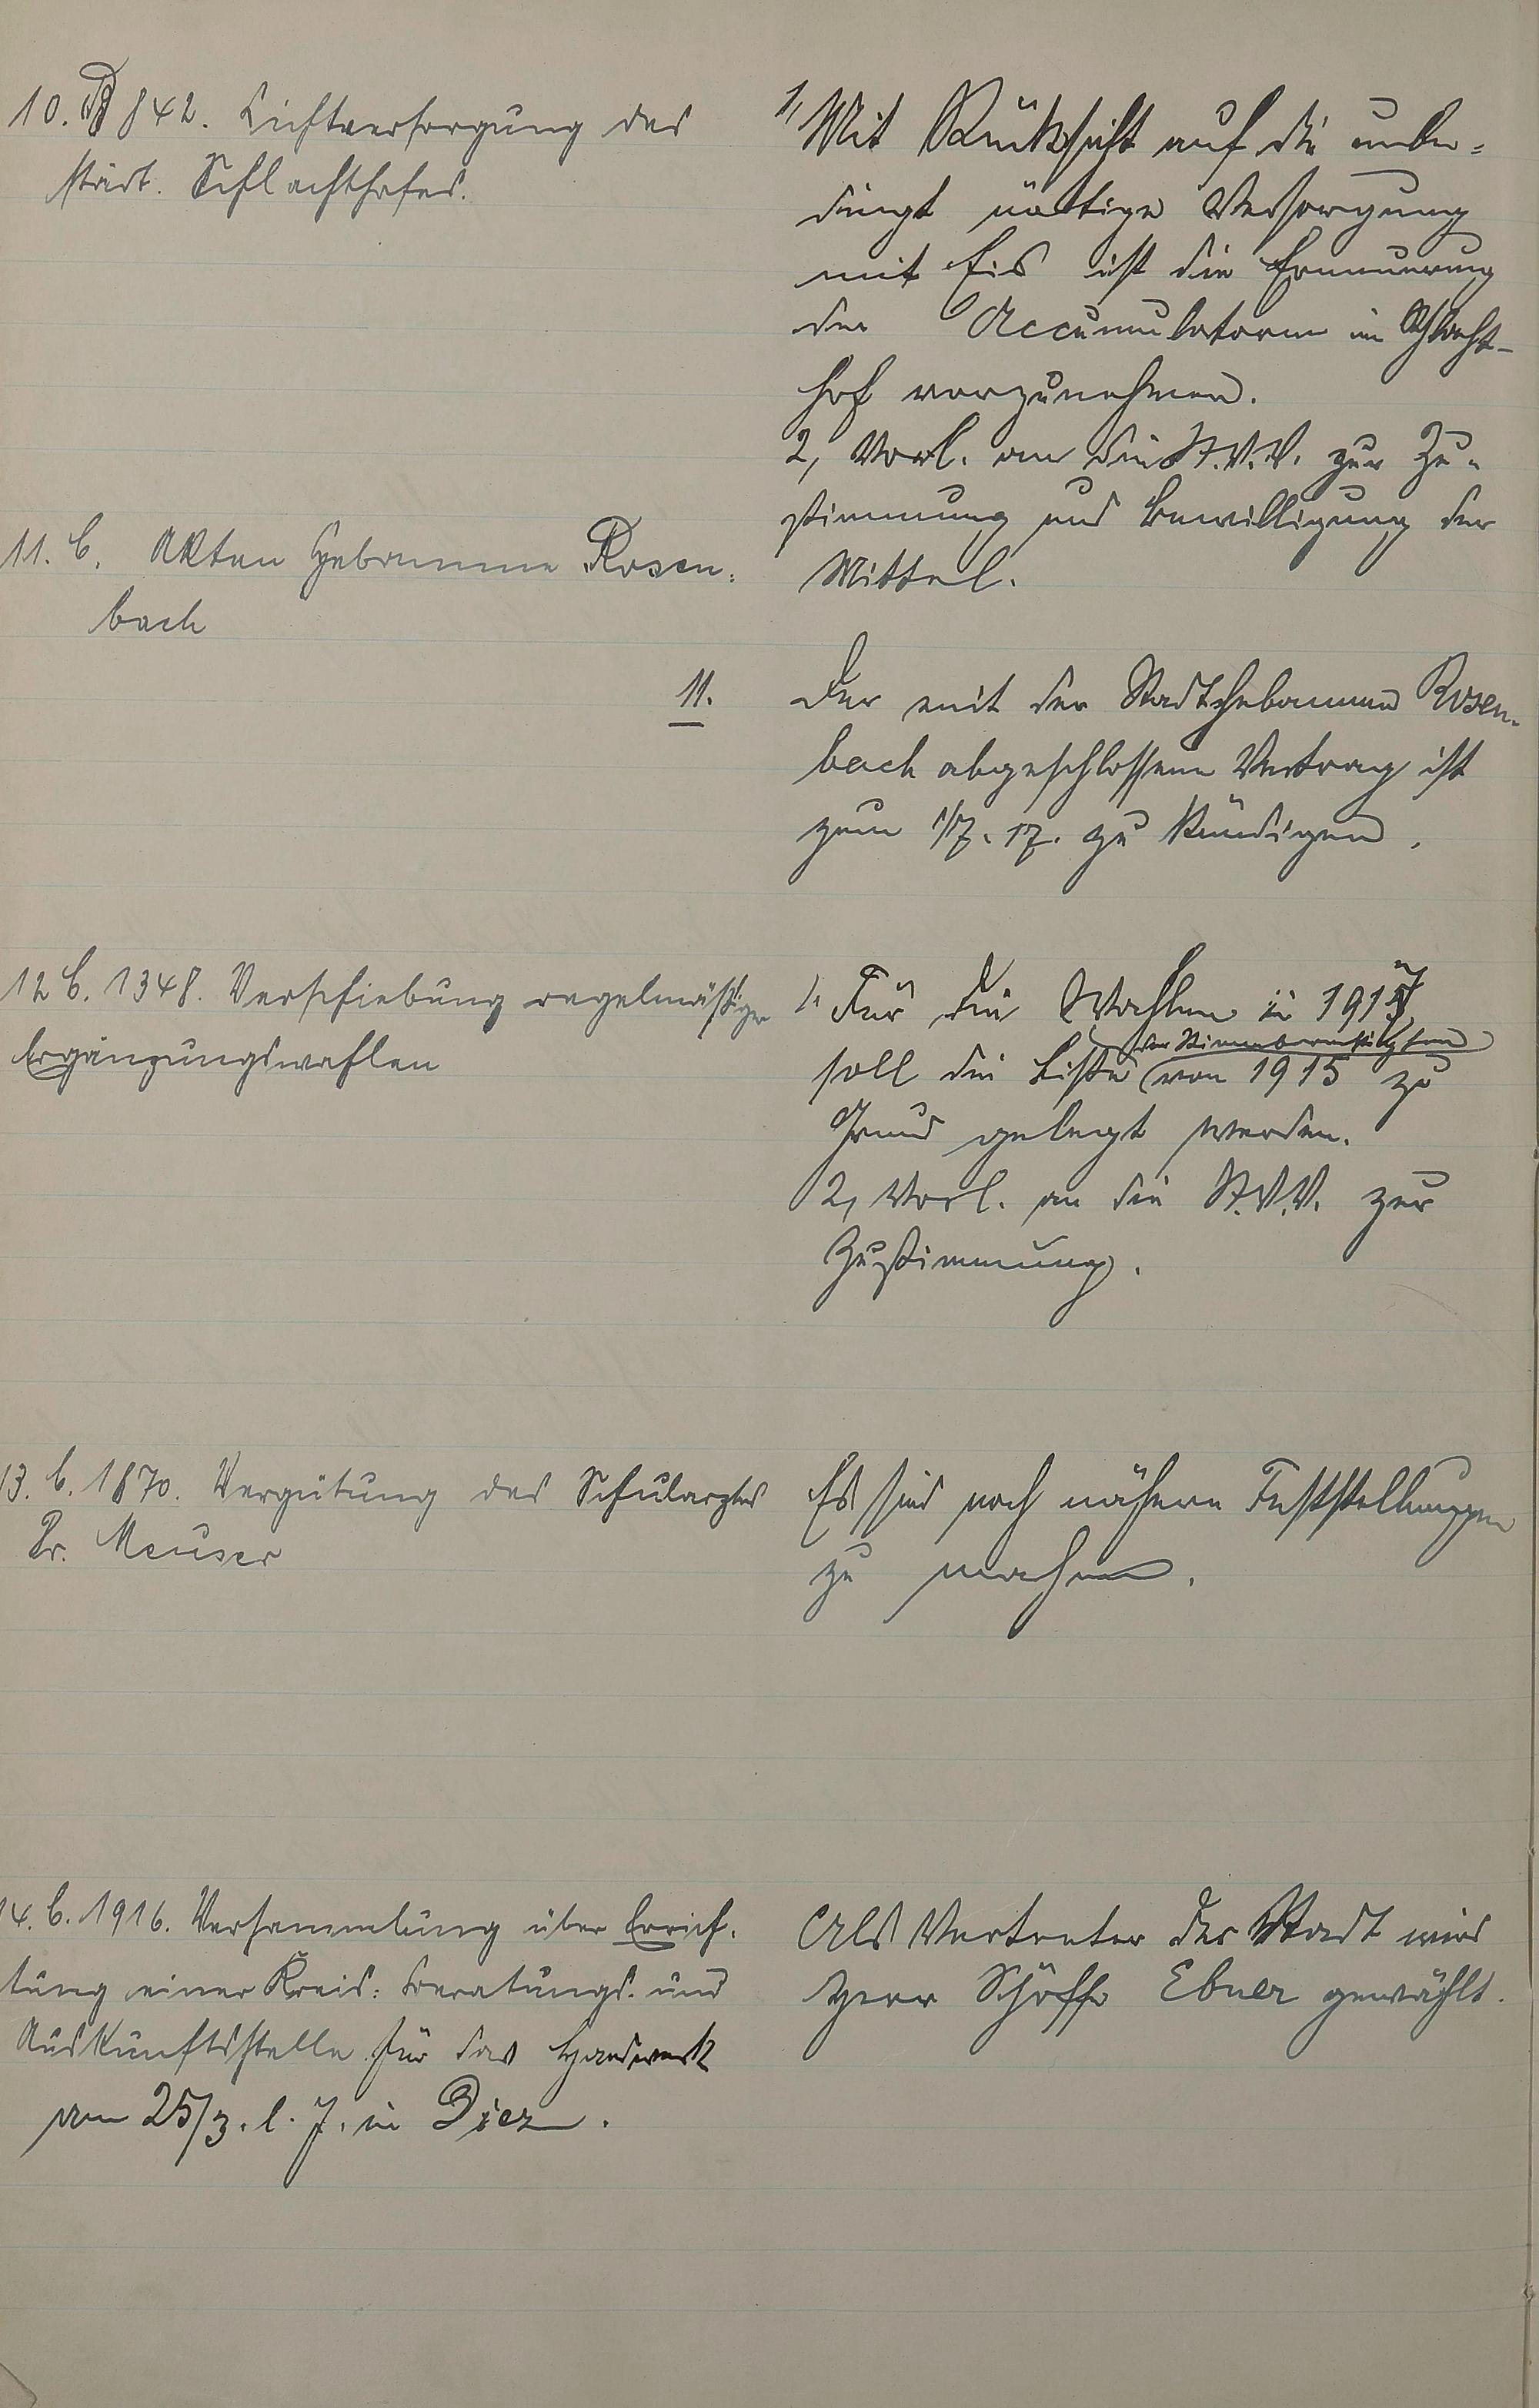 10. B 842. Lichtversorgung des
städt. Schlachthofes.
1, Mit Rücksicht auf die unbe-
dingt nöttige Versorgung
mit Eis ist die Erneuerung
der Accumulatoren im Schlacht-
hof vorzunehmen.
2, Vorl. an die St.V.V. zur Zu-
stimmung und Bewilligung der
Mittel.
11. C. Akten Hebamme Rosen-
bach
11. Der mit der Stadthebamme Rosen-
bach abgeschlossene Vertrag ist
zum 1/7. 17. zu kündigen.
12 C. 1348. Verschiebung regelmäßiger
Ergänzungswahlen
1, Für die Wahlen in 1917
soll die Liste der Stimmberechtigten von 1915 zu
Grund gelegt werden.
2, Vorl. an die St.V.V. zur
Zustimmung.
13. C. 1870. Vergütung des Schularztes
Dr. Meuser
Es sind noch nähere Feststellungen
zu machen.
14. C. 1916. Versammlung über Errich-
tung einer Kreis- Beratungs- und
Auskunftsstelle für das Handwerk
am 25/3. l. J. in Diez.
Als Vertreter der Stadt wird
Herr Schöffe Ebner gewählt.